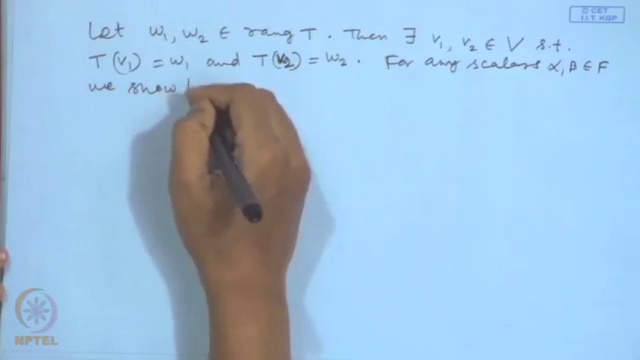 © CET
I.I.T. KGP
Let w₁, w₂ ∈ rang T. Then ∃ v₁, v₂ ∈ V s.t.
T(v₁) = w₁ and T(v₂) = w₂. For any scalars α, β ∈ F
we show
NPTEL